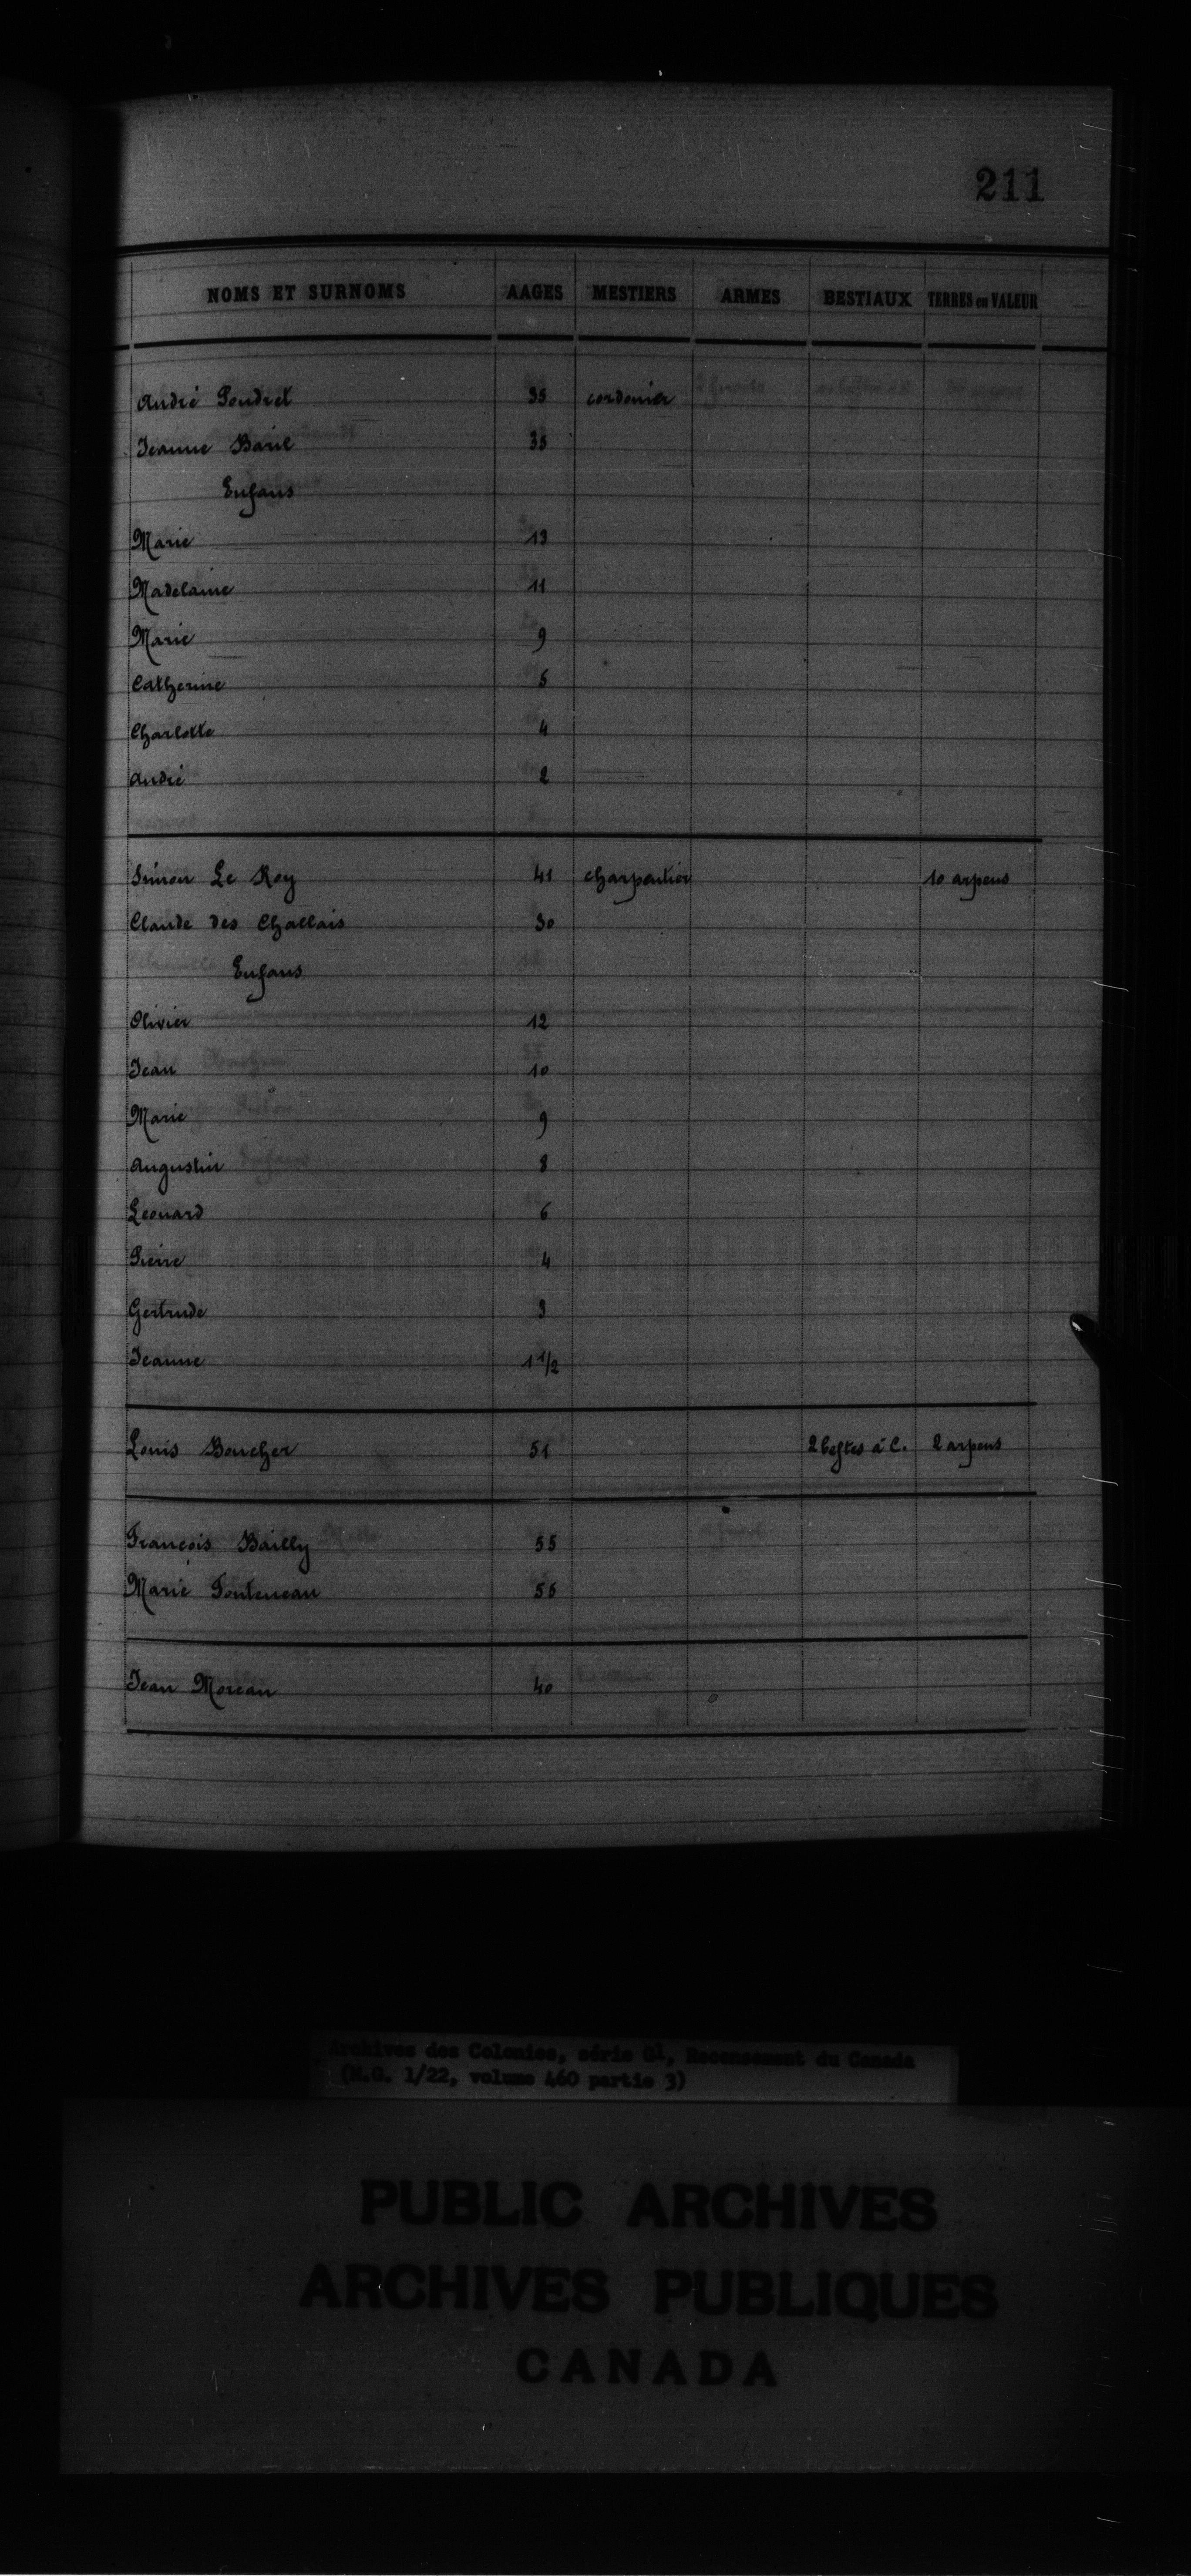 211
NOMS ET SURNOMS AAGES MESTIERS ARMES BESTIAUX TERRES en VALEUR
André Poudret 35 cordonier
Jeanne Baril 35
Enfans
Marie 13
Madelaine 11
Marie 9
Catherine 5
Charlotte 4
André 2
Simon Le Roy 41 charpentier 10 arpens
Claude des Challais 30
Enfans
Olivier 12
Jean 10
Marie 9
Augustin 8
Leonard 6
Pierre 4
Gertrude 3
Jeanne 1 1/2
Louis Boucher 51 2 bestes à C. 2 arpens
François Bailly 55
Marie Fonteneau 56
Jean Moreau 40
Archives des Colonies, série G1, Recensement du Canada
(M.G. 1/22, volume 460 partie 3)
PUBLIC ARCHIVES
ARCHIVES PUBLIQUES
CANADA